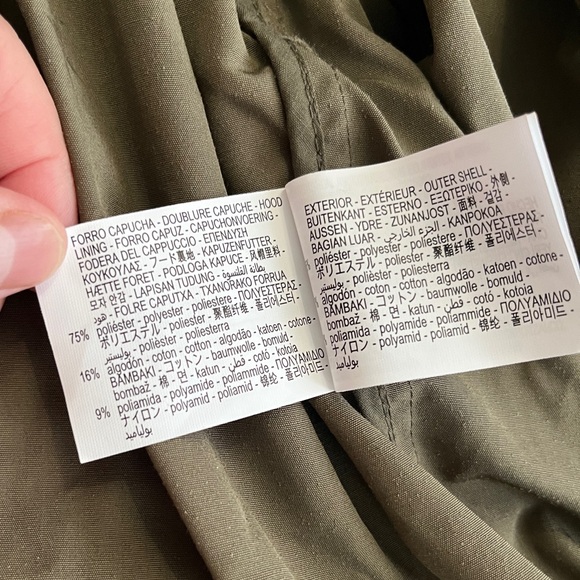 FORRO CAPUCHA - DOUBLURE CAPUCHE - HOOD
LINING - FORRO CAPUZ - CAPUCHONVOERING -
FODERA DEL CAPPUCCIO - ΕΠΕΝΔΥΣΗ
ΚΟΥΚΟΥΛΑΣ - フード裏地 - KAPUZENFUTTER -
HÆTTE FORET - PODLOGA KAPUCE - 风帽里料 -
모자 안감 - LAPISAN TUDUNG - بطانة القلنسوة
هود - FOLRE CAPUTXA - TXANORAKO FORRUA
75% poliéster - polyester - poliestere - ΠΟΛΥΕΣΤΕΡΑΣ -
ポリエステル - poliester - 聚酯纤维 - 폴리에스터 -
بوليستير - polièster - poliesterra
16% algodón - coton - cotton - algodão - katoen - cotone -
ΒΑΜΒΑΚΙ - コットン - baumwolle - bomuld -
bombaž - 棉 - 면 - katun - قطن - cotó - kotoia
9% poliamida - polyamide - poliammide - ΠΟΛΥΑΜΙΔΙΟ
ナイロン - polyamid - poliamid - 锦纶 - 폴리아미드 -
بولياميد
EXTERIOR - EXTÉRIEUR - OUTER SHELL -
BUITENKANT - ESTERNO - ΕΞΩΤΕΡΙΚΟ - 外側 -
AUSSEN - YDRE - ZUNANJOST - 面料 - 겉감 -
BAGIAN LUAR - الجزء الخارجي - KANPOKOA
poliéster - polyester - poliestere - ΠΟΛΥΕΣΤΕΡΑΣ -
ポリエステル - poliester - 聚酯纤维 - 폴리에스터 -
بوليستير - polièster - poliesterra
algodón - coton - cotton - algodão - katoen - cotone -
ΒΑΜΒΑΚΙ - コットン - baumwolle - bomuld -
bombaž - 棉 - 면 - katun - قطن - cotó - kotoia
poliamida - polyamide - poliammide - ΠΟΛΥΑΜΙΔΙΟ
ナイロン - polyamid - poliamid - 锦纶 - 폴리아미드 -
بولياميد